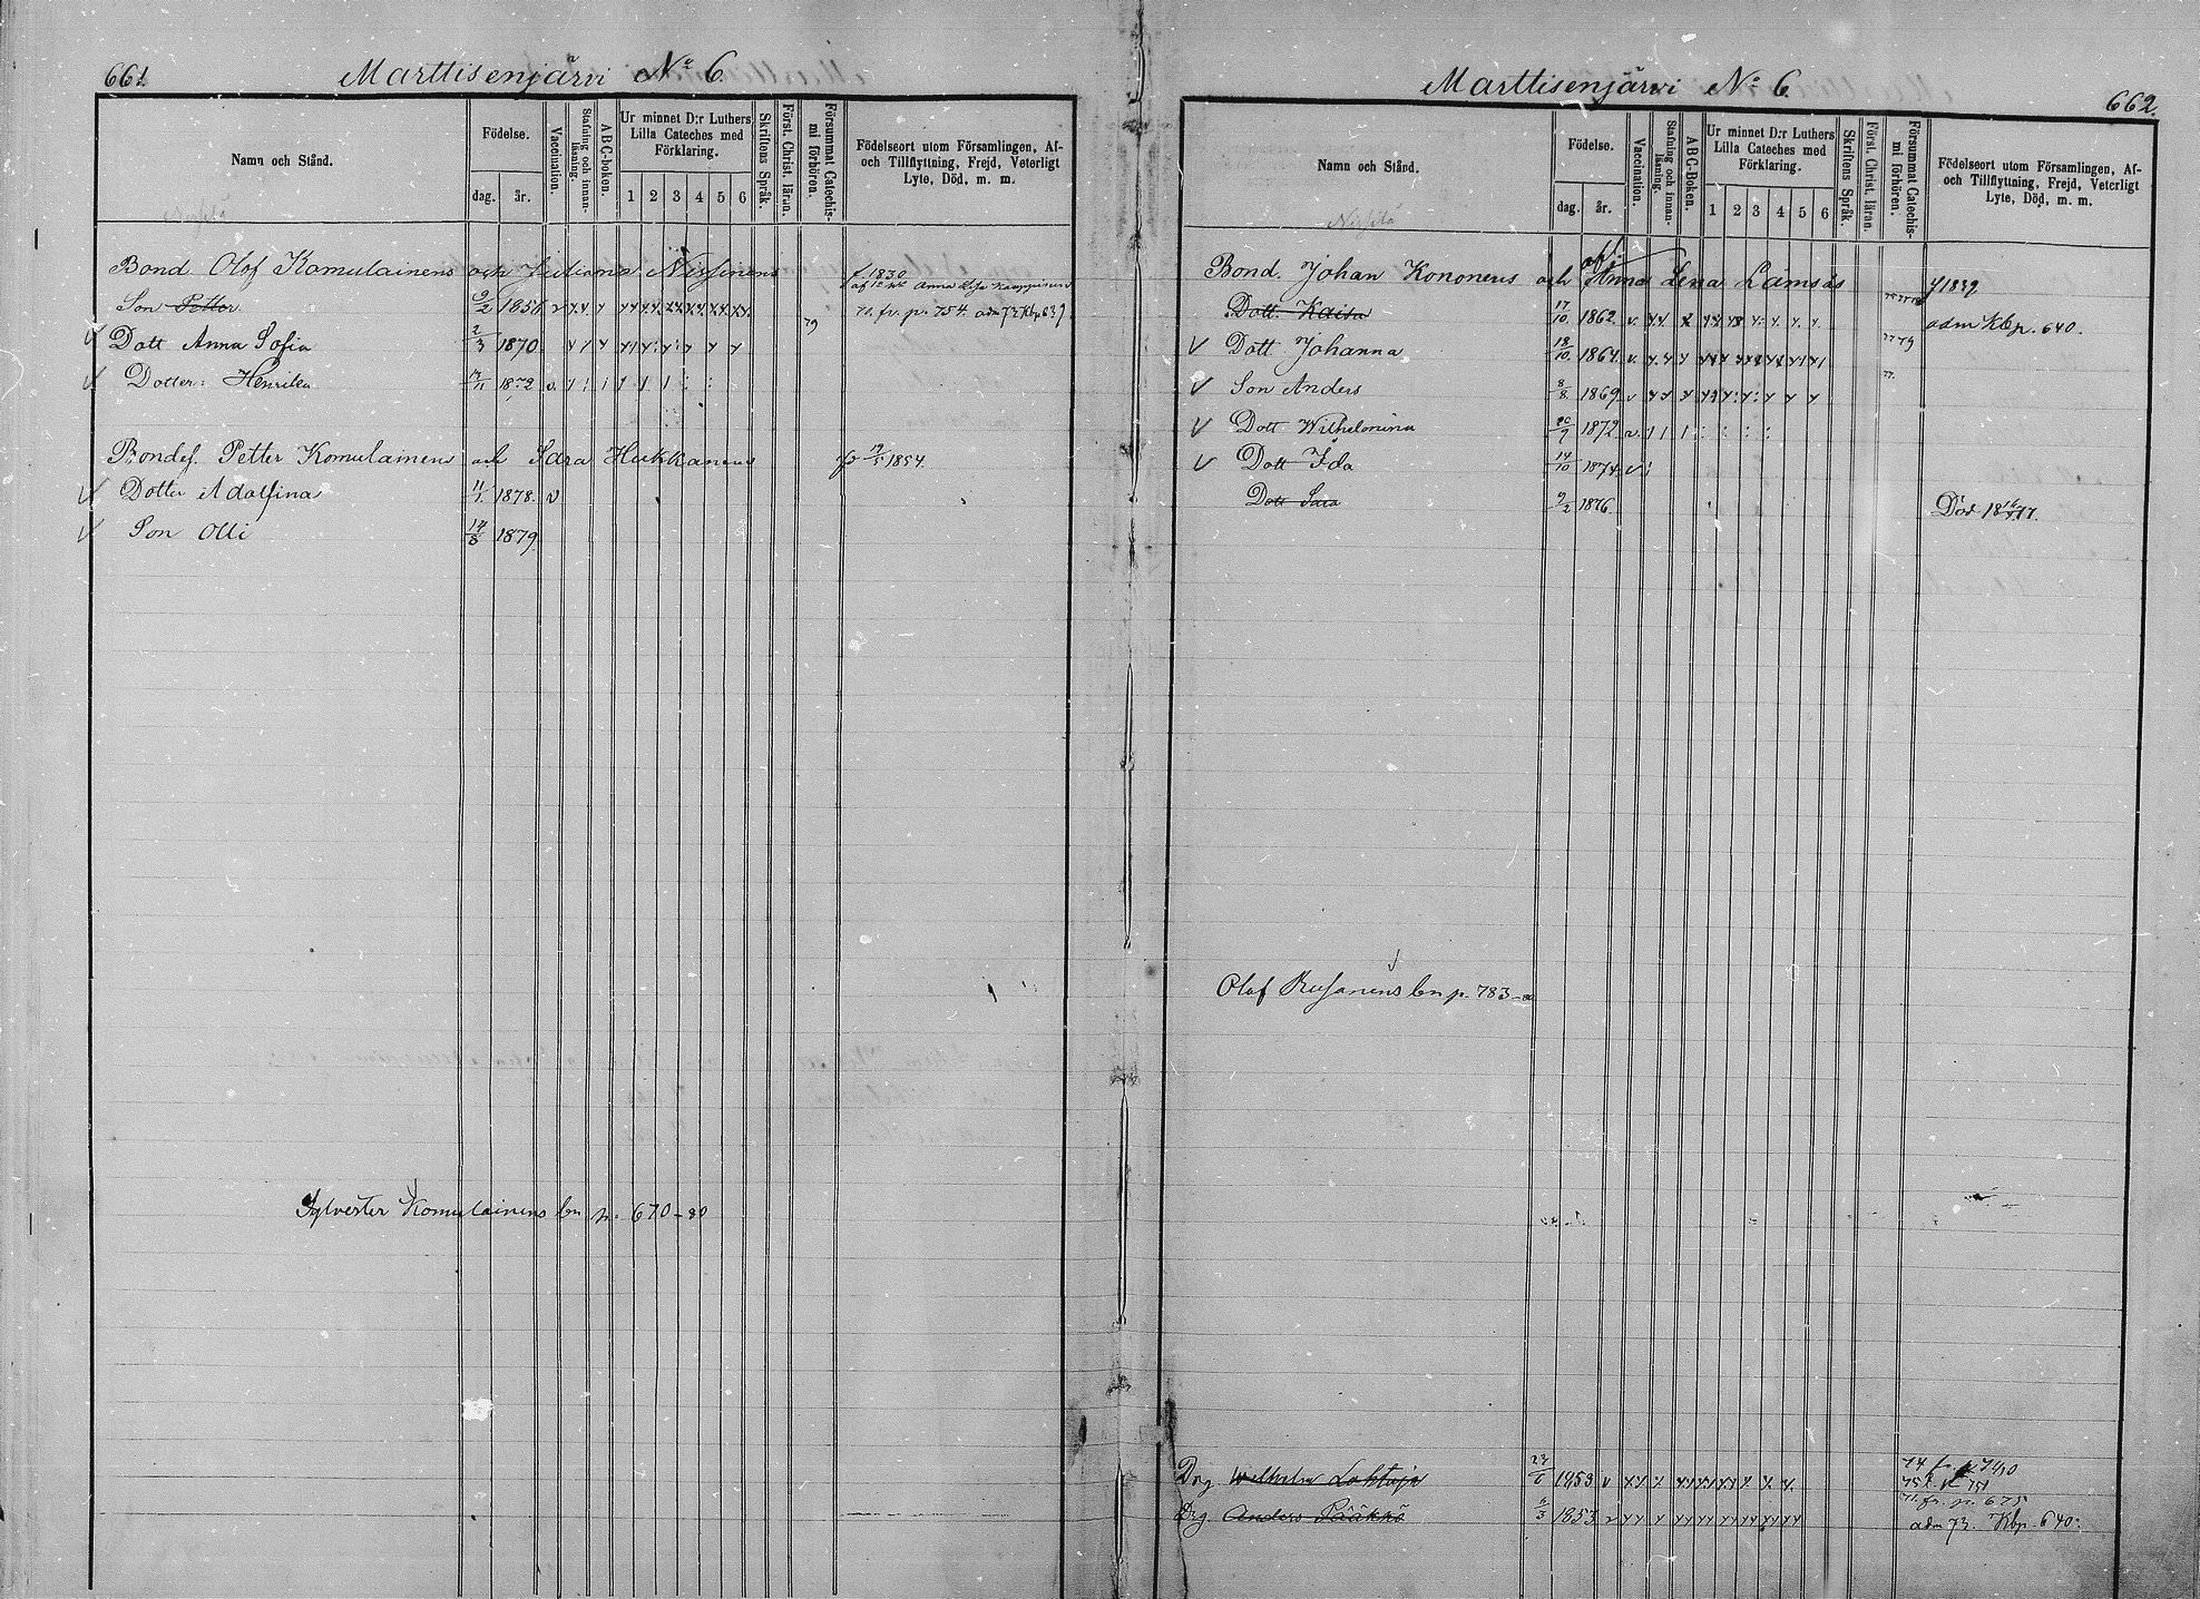 661.
Marttisenjärvi No 6.
Namn och Stånd.
Födelse.
dag.
år.
Vaccination.
Stafning och innan-
läsning.
ABC-boken.
Ur minnet D:r Luthers
Lilla Cateches med
Förklaring.
1 2 3 4 5 6
Skriftens Språk.
Först. Christ. läran.
Försummat Catechis-
mi förhören.
Födelseort utom Församlingen, Af-
och Tillflyttning, Frejd, Veterligt
Lyte, Död, m. m.
Bond Olof Komulainens och Juliana Nissinens f 1830
Son Petter 9/2 1856 v 71. fr. p. 754. adm 73 Kbp 639
Dott Anna Sofia 2/3 1870 79
Dotter: Henrika 1872 v.
Bondes. Petter Komulainens och Sara Hukkanens 1854.
Dotter Adolfina 11/1 1878. v
Son Olli 14/8 1879.
Sylvester Komulainens bn p. 670-80
Marttisenjärvi No 6.
662.
Namn och Stånd.
Födelse.
dag.
år.
Vaccination.
Stafning och innan-
läsning.
ABC-Boken.
Ur minnet D:r Luthers
Lilla Cateches med
Förklaring.
1 2 3 4 5 6
Skriftens Språk.
Först. Christ. läran.
Försummat Catechis-
mi förhören.
Födelseort utom Församlingen, Af-
och Tillflyttning, Frejd, Veterligt
Lyte, Död, m. m.
Bond. Johan Kononens och Anna Lena Lämsäs f 1839
Dott. Kaisa 17/10 1862. v. adm Kbp. 640.
Dott Johanna 18/10. 1864. v. 77 79
Son Anders 8/8. 1869. v 77.
Dott Wilhelmina 20/9 1872. v.
Dott Ida 14/10 1874. v
Dott Sara 9/2 1876. Död 18 77.
Olof Rusanens bn p. 783-
Drg. Wilhelm Lohtaja 1853 v
Drg. Anders Pääkkö 1853 v 71. fr. p. 675
adm 73. Kbp. 640.